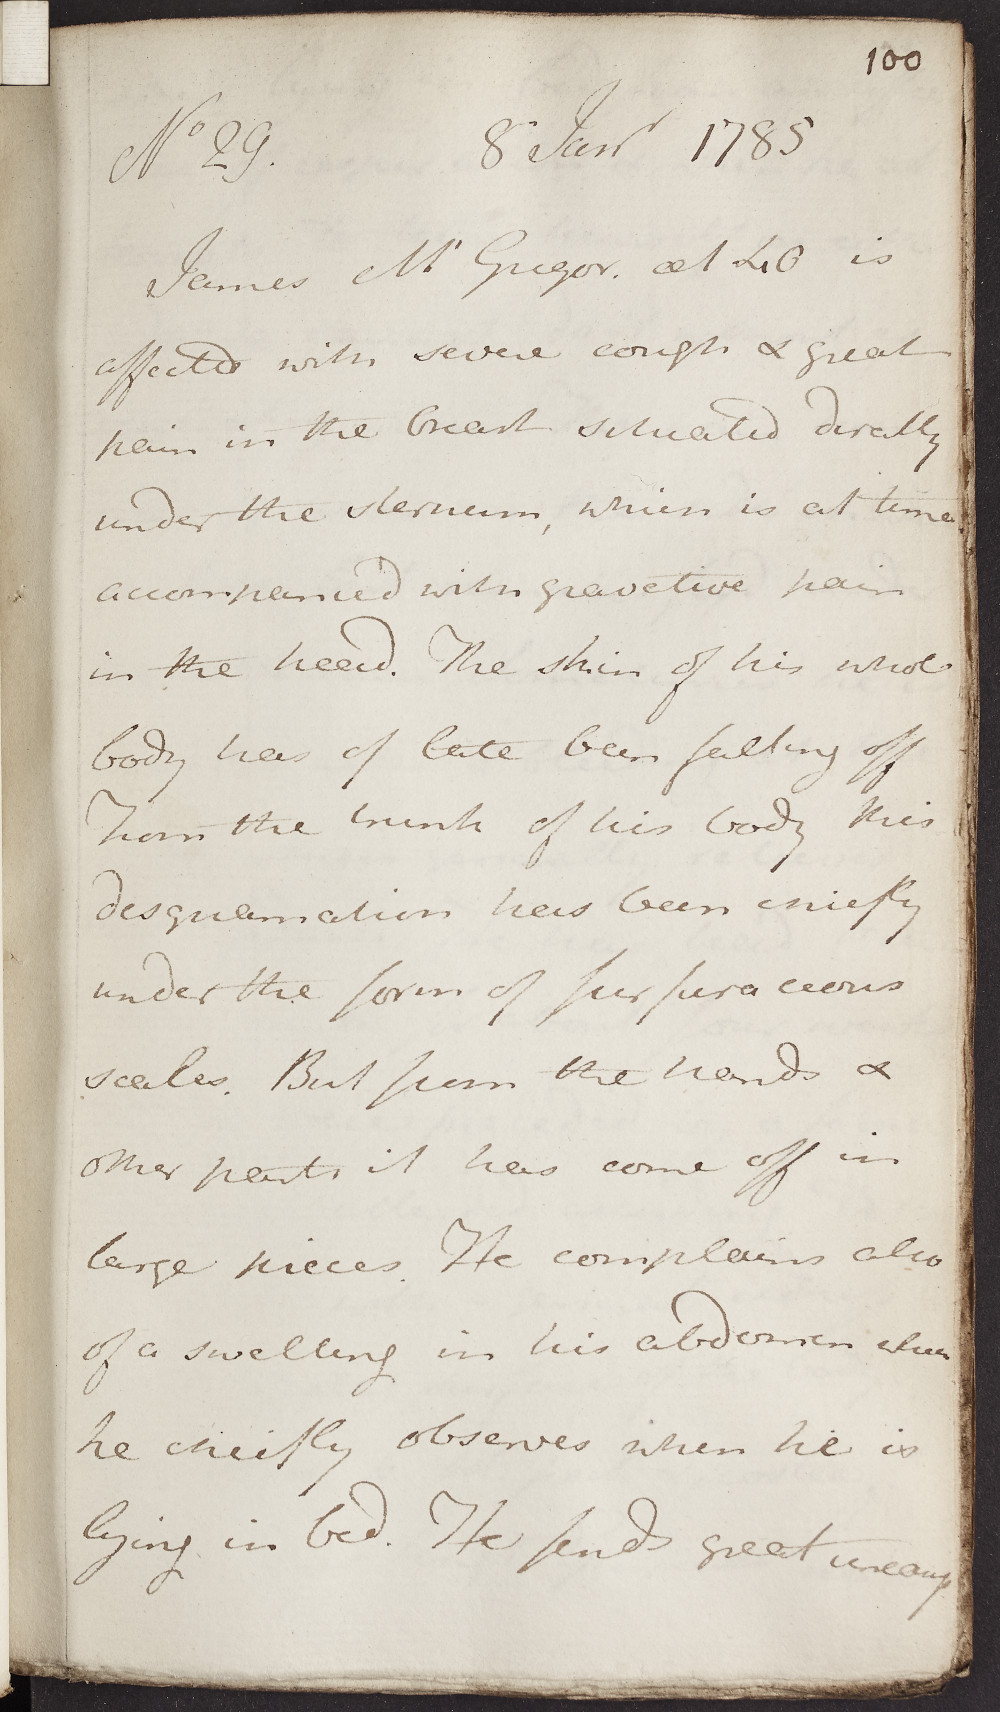 100
No 29. 8 Janr 1785
James Mc Gregor. æt 40 is
affected with severe cough & great
pain in the breast situated directly
under the sternum, which is at times
accompanied with gravative pain
in the head. The skin of his whole
body has of late been falling off
From the trunk of his body this
desquamation has been chiefly
under the form of furfuraceous
scales. But from the hands &
other parts it has come off in
large pieces. He complains also
of a swelling in his abdomen which
he cheifly observes when he is
lying in bed. He finds great uneasy